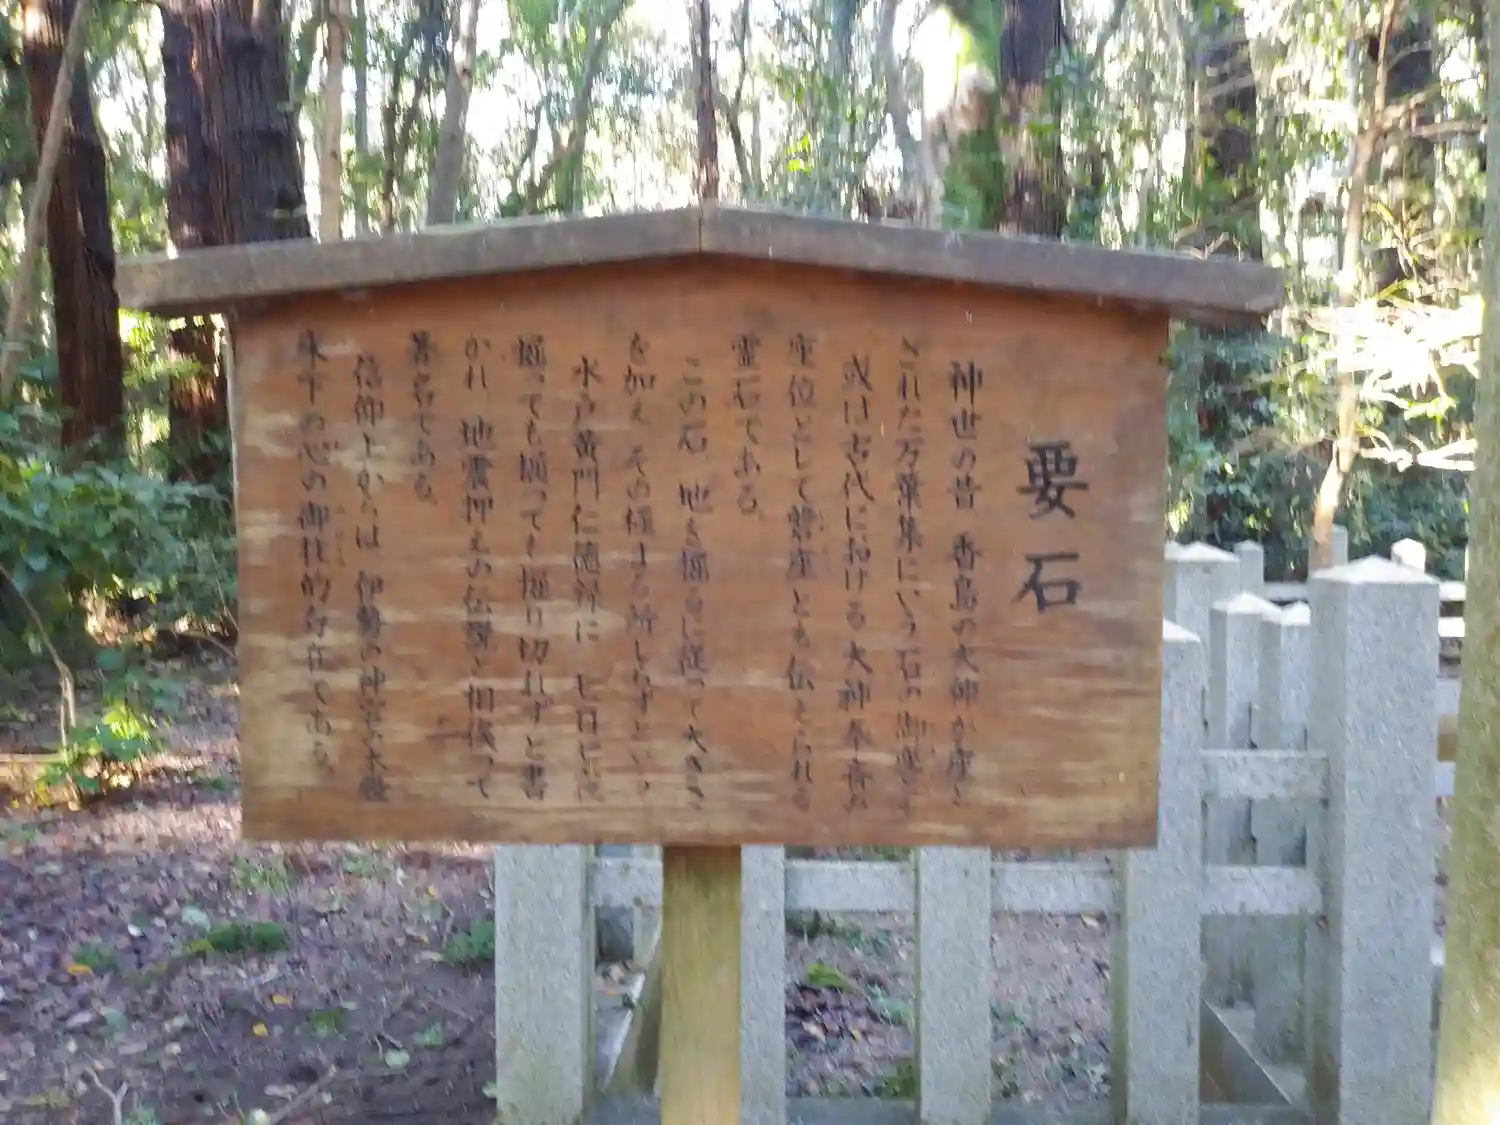 要石
神世の昔 香島の大神が座と
された万葉集にいう石の御座と
或は古代における大神奉斎の
座位として磐座とも伝えられる
霊石である。
この石 地を掘るに従って大きさ
を加え その極まる所しらずという
水戸黄門仁徳録に 七日七夜
掘っても掘っても掘り切れずと書
かれ 地震押えの伝説と相俟って
著名である。
信仰上からは 伊勢の神宮の本殿
床下の心の御柱的存在である。